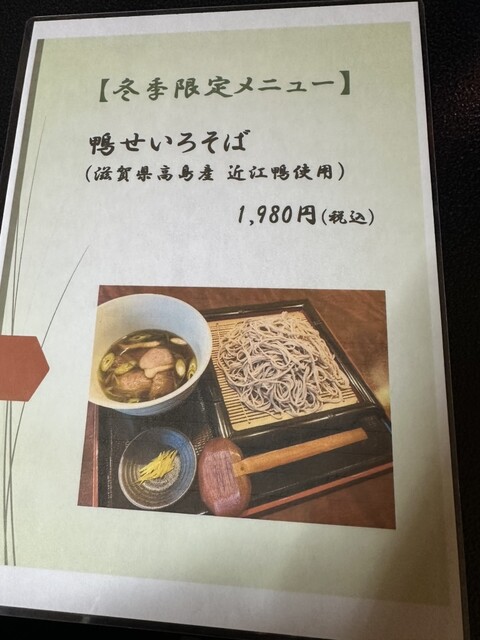 【冬季限定メニュー】
鴨せいろそば
(滋賀県高島産 近江鴨使用)
1,980円(税込)